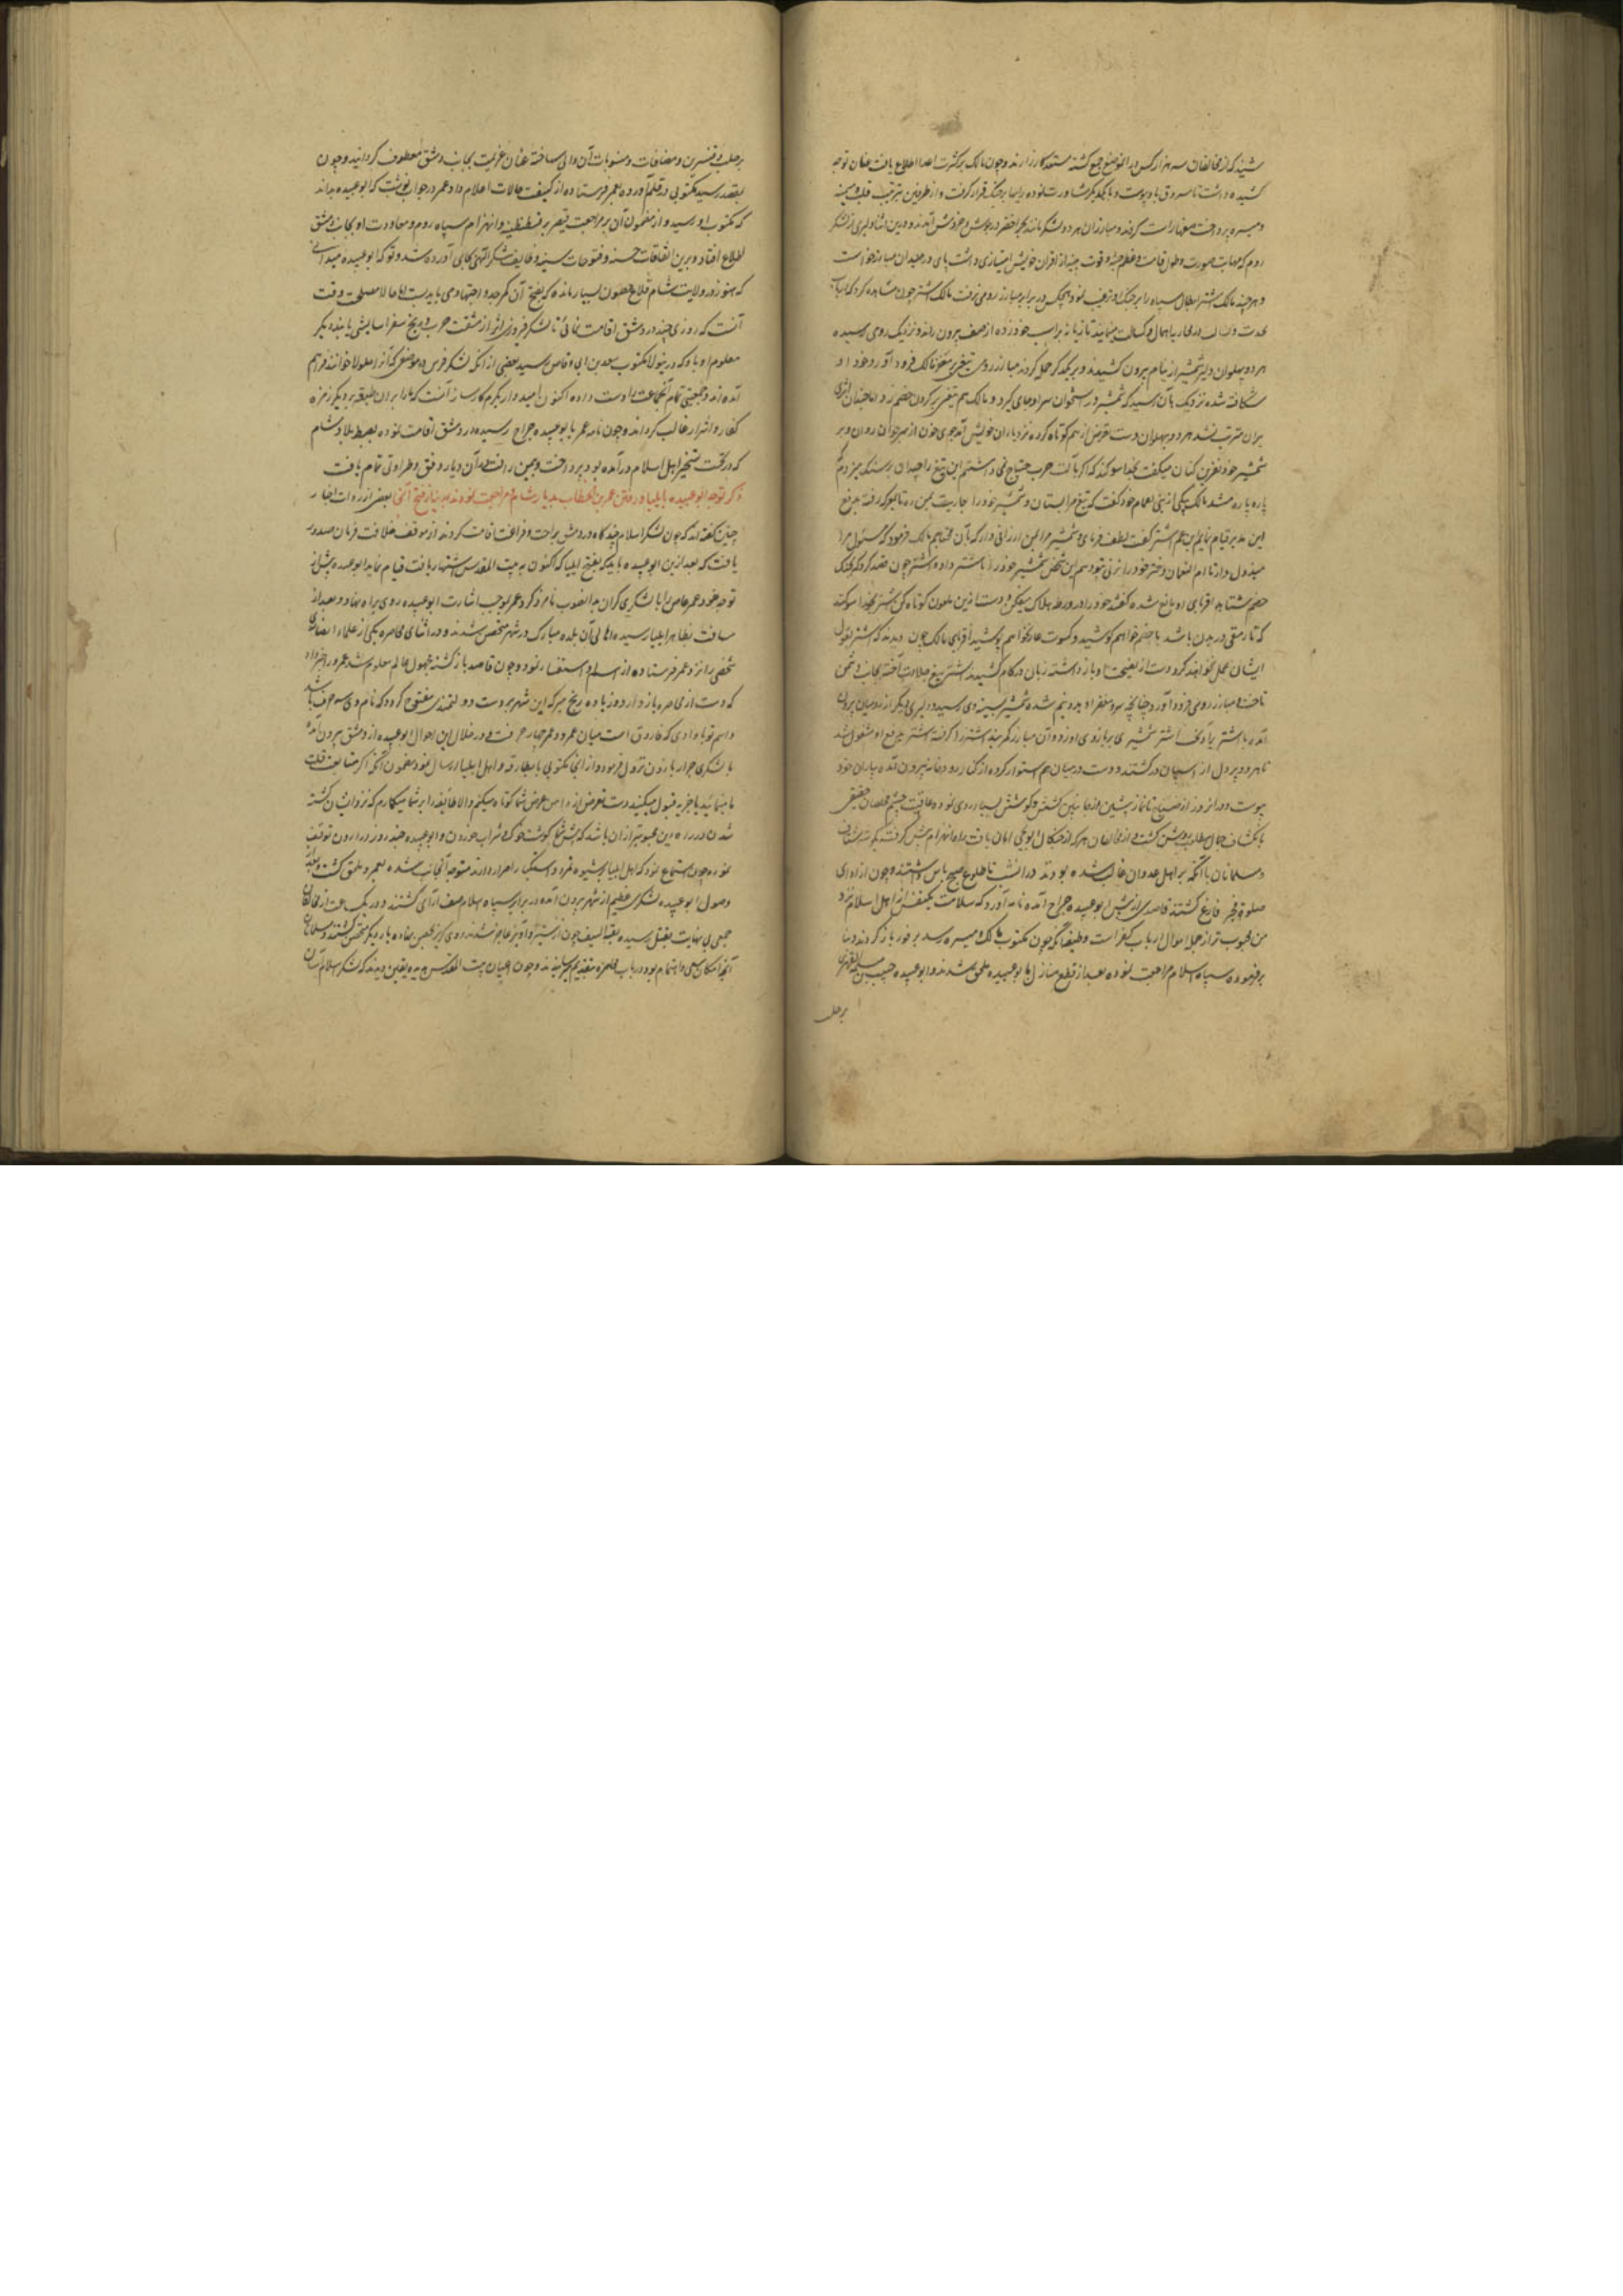 شنید که از مخالفان سه هزار کس در آن موضع جمع گشته مستعد کارزارند و چون مالک بر کثرت اعدا اطلاع یافت عنان توجه
کشیده داشت تا مسروق باو پیوست و با یکدیگر مشاورت نموده رایها بر جنگ قرار گرفت و از طرفین بترتیب قلب و میمنه
و میسره پرداخت صفها راست کردند و مبارزان هر دو لشکر مانند بحر اخضر در جوش و خروش آمدند و درین اثنا دلیری از لشکر
روم که بمهابت صورت و طول قامت و عظم جثه و قوت پنجه از اقران خویش امتیازی داشت پای در میدان مبارزخواست
و هر چند مالک اشتر ابطال سپاه را بر جنگ او ترغیب نمود هیچکس در برابر مبارز رومی نرفت مالک اشتر چون مشاهده کرد که
تازیانه بر اسب خود زده از صف بیرون راند و نزدیک رومی رسیده
هر دو پهلوان دلیر شمشیر از نیام بیرون کشیدند و بر یکدیگر حمله کردند مبارز رومی تیغی بر مغفر مالک فرود آورد و خود او
شکافته شده نزدیک بآن رسید که شمشیر در استخوان سر او جای گیرد و مالک هم تیغی بر گردن خصم زد اما چندان اثری
بران مترتب نشد هر دو پهلوان دست تعرض از هم کوتاه کرده نزد یاران خویش آمده جوی خون از سر جوان روان و بر
شمشیر خود نفرین کنان میگفت بخدا سوگند که اگر بآلت حرب محتاج نمی داشتم این تیغ را چندان بر سنگ میزدم که
پاره پاره میشد مالک بیکی از بنی اعمام خود گفت که تیغ مرا بستان و شمشیر خود را بعاریت بمن ده تا دیگر که رفته بدفع
این مدبر قیام نمایم ابن عم اشتر گفت لطف فرمای و شمشیر مرا بمن ارزانی دار که بآن محتاجم مالک فرمود که مسئول مرا
مبذول دار تا ام النعمان دختر خود را بزنی بتو دهم این شخص شمشیر خود را باشتر داده اشتر چون قصد کرد که بجنگ
خصم شتابد اقربای او مانع شده گفتند خود را در ورطه هلاک میفکن و دست ازین ملعون کوتاه کن اشتر بخدا سوگند
که تا رمقی در بدن باشد با خصم خواهم کوشید و کسوت عار نخواهم پوشید اقربای مالک چون دیدند که اشتر بقول
ایشان عمل نخواهد کرد دست از نصیحت او باز داشته زبان در کام کشیدند اشتر تیغ جلادت آخته بجانب دشمن
تاخت و مبارز رومی فرود آورد چنانچه سر و مغفر او بدو نیم شده شمشیر بسینه وی رسید و دلیری دیگر از رومیان بیرون
آمده با اشتر برآویخت اشتر شمشیری بر بازوی او زد و آن مبارز کمربند اشتر را گرفته اشتر بدفع او مشغول شد
تا هر دو پردل از اسپان در گشتند و دست در میان هم استوار کرده از کنار رودخانه بیرون آمده بیاران خود
پیوست و در آنروز از صباح تا نماز پیشین از جانبین کشش و کوشش بسیار روی نمود و عاقبت چشم مخلصان حقیقی
بانکشاف جمال مطلوب روشن گشت و از مخالفان هر که از چنگال بوتیمی امان یافت راه انهزام پیش گرفت
و مسلمانان با آنکه بر اهل عدوان غالب شده بودند در آنشب تا طلوع صبح پاس داشتند و چون از ادای
صلوة فجر فارغ گشتند قاصدی از پیش ابو عبیده جراح آمده نامه آورد که سلامت یکنفس از اهل اسلام نزد
من محبوب تر از جمله اموال ارباب کفر است وظیفه آنکه چون مکتوب بمالک و میسره رسد بر فور باز گردند و بنا
بر فرموده سپاه اسلام مراجعت نموده بعد از قطع منازل بابو عبیده ملحق شدند و ابو عبیده حبیب بن مسلمة الفهری
برحلب
برحلب و قنسرین و مضافات و منسوبات آن والی ساخته عنان عزیمت بجانب دمشق معطوف گردانید و چون
بمقصد رسید مکتوبی در قلم آورده بعمر فرستاده از کیفیت حالات اعلام داد و عمر در جواب نوشت که ابو عبیده بداند
که مکتوب او رسید و از مضمون آن بر مراجعت قیصر بر قسطنطنیه و انهزام سپاه روم و معاودت او بجانب دمشق
اطلاع افتاد و برین اتفاقات حسنه و فتوحات سنیه وظایف شکر الهی بجای آورده شد و تو که ابو عبیده میدانی
که هنوز در ولایت شام قلاع و حصون بسیار مانده که بفتح آن کمر جد و اجتهاد می باید بست اما حالا مصلحت وقت
آنست که روزی چند در دمشق اقامت نمائی تا لشکر فیروزی اثر از مشقت حرب و رنج سفر آسایشی یابند دیگر
معلوم او باد که درینولا مکتوب سعد بن ابی وقاص رسید بعضی از آنکه لشکر فرس در موضعی که آنرا جلولا خوانند فراهم
آمده اند و جمعیتی تمام آنجماعت را دست داده اکنون امید وار بکرم کارساز آنست که ما را بر آن طبقه بر دیگر زمره
کفار و اشرار غالب گرداند و چون نامه عمر بابو عبیده جراح رسیده در دمشق اقامت نموده بضبط بلاد شام
که در تحت تسخیر اهل اسلام درآمده بود پرداخت و بیمن رافت او آن دیار رونق و طراوتی تمام یافت
ذکر توجه ابو عبیده بایلیا و رفتن عمر بن الخطاب بدیار شام و مراجعت نمودن بمدینه از فتح آنجا بعضی از روات اخبار
چنین گفته اند که چون لشکر اسلام چند گاه در دمشق براحت و فراغت اقامت کردند از موقف خلافت فرمان صدور
یافت که بعد ازین ابو عبیده باید که بفتح ایلیا که اکنون به بیت المقدس اشتهار یافته قیام نماید ابو عبیده پیش از
توجه خود عمرو عاص را با لشکری گران بدانصوب نامزد کرد و عمرو بموجب اشارت ابو عبیده روی براه نهاد و بعد از
مسافت بظاهر ایلیا رسیده اهالی آن بلده مبارک در شهر متحصن شدند و در اثنای محاصره یکی از علماء نصاری
شخصی را نزد عمر فرستاده از اسلام و استفسار نمود و چون قاصد باز گشته مجهول عالم معلوم شد عمرو را خبر داد
که دست از محاصره باز دار و روز باده رنج مبر که این شهر بر دست دولتمندی مفتوح گردد که نام وی سه حرف باشد
و اسم تو با واوی که فارق است میان عمر و عمرو چهار حرفست و در خلال این احوال ابو عبیده از دمشق بیرون آمده
با لشکری جرار باردن نزول فرمود و از آنجا مکتوبی بابطارقه و اهل ایلیا ارسال نمود مضمون آنکه اگر متابعت ملت
ما مینمائید یا جزیه قبول میکنید دست تعرض از دامن عرض شما کوتاه میکنم والا طایفه را بر شما میگمارم که نزد ایشان کشته
شدن در راه دین محبوبتر از آن باشد که پیش شما گوشت خوک و شراب خوردن و ابو عبیده چند روز در اردن توقف
نموده چون استماع نمود که اهل ایلیا بشیوه تمرد و استکبار اصرار دارند متوجه آنجانب شده بعمرو ملحق گشت و بعد از
وصول ابو عبیده لشکری عظیم از شهر بیرون آمده در برابر سپاه اسلام صف آرای گشتند و در یک ساعت از مخالفان
جمعی بی نهایت بقتل رسیده بقیة السیف چون از ستیز و آویز عاجز شدند روی گریز بحصن نهاده بار دیگر متحصن گشتند و مسلمانان
آنچه امکان سعی و اهتمام بود در باب محاصره بتقدیم رسانیدند و چون اعیان بیت المقدس دیدند که لشکر اسلام